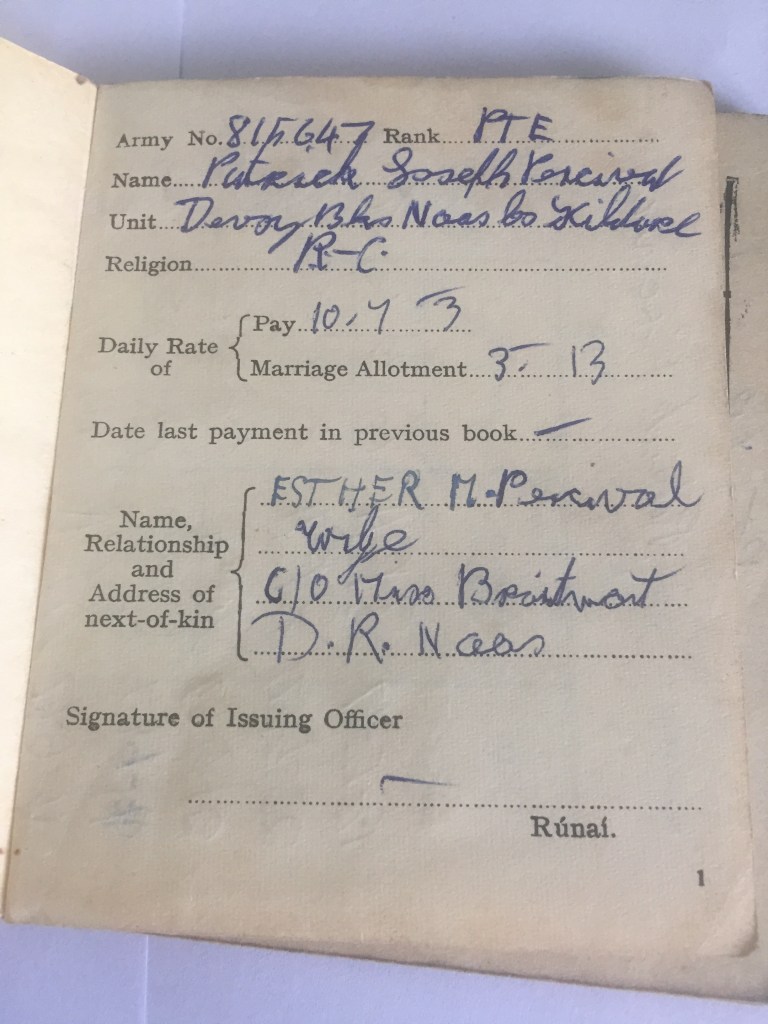 Army No. 815647 Rank PTE
Name Patrick Joseph Percival
Unit Devoy Bks Naas Co Kildare
Religion R-C.
Daily Rate of
Pay 10.7 3
Marriage Allotment 3. 13
Date last payment in previous book —
Name, Relationship and Address of next-of-kin
ESTHER M. Percival
wife
C/O
D.R. Naas
Signature of Issuing Officer
Rúnaí.
1